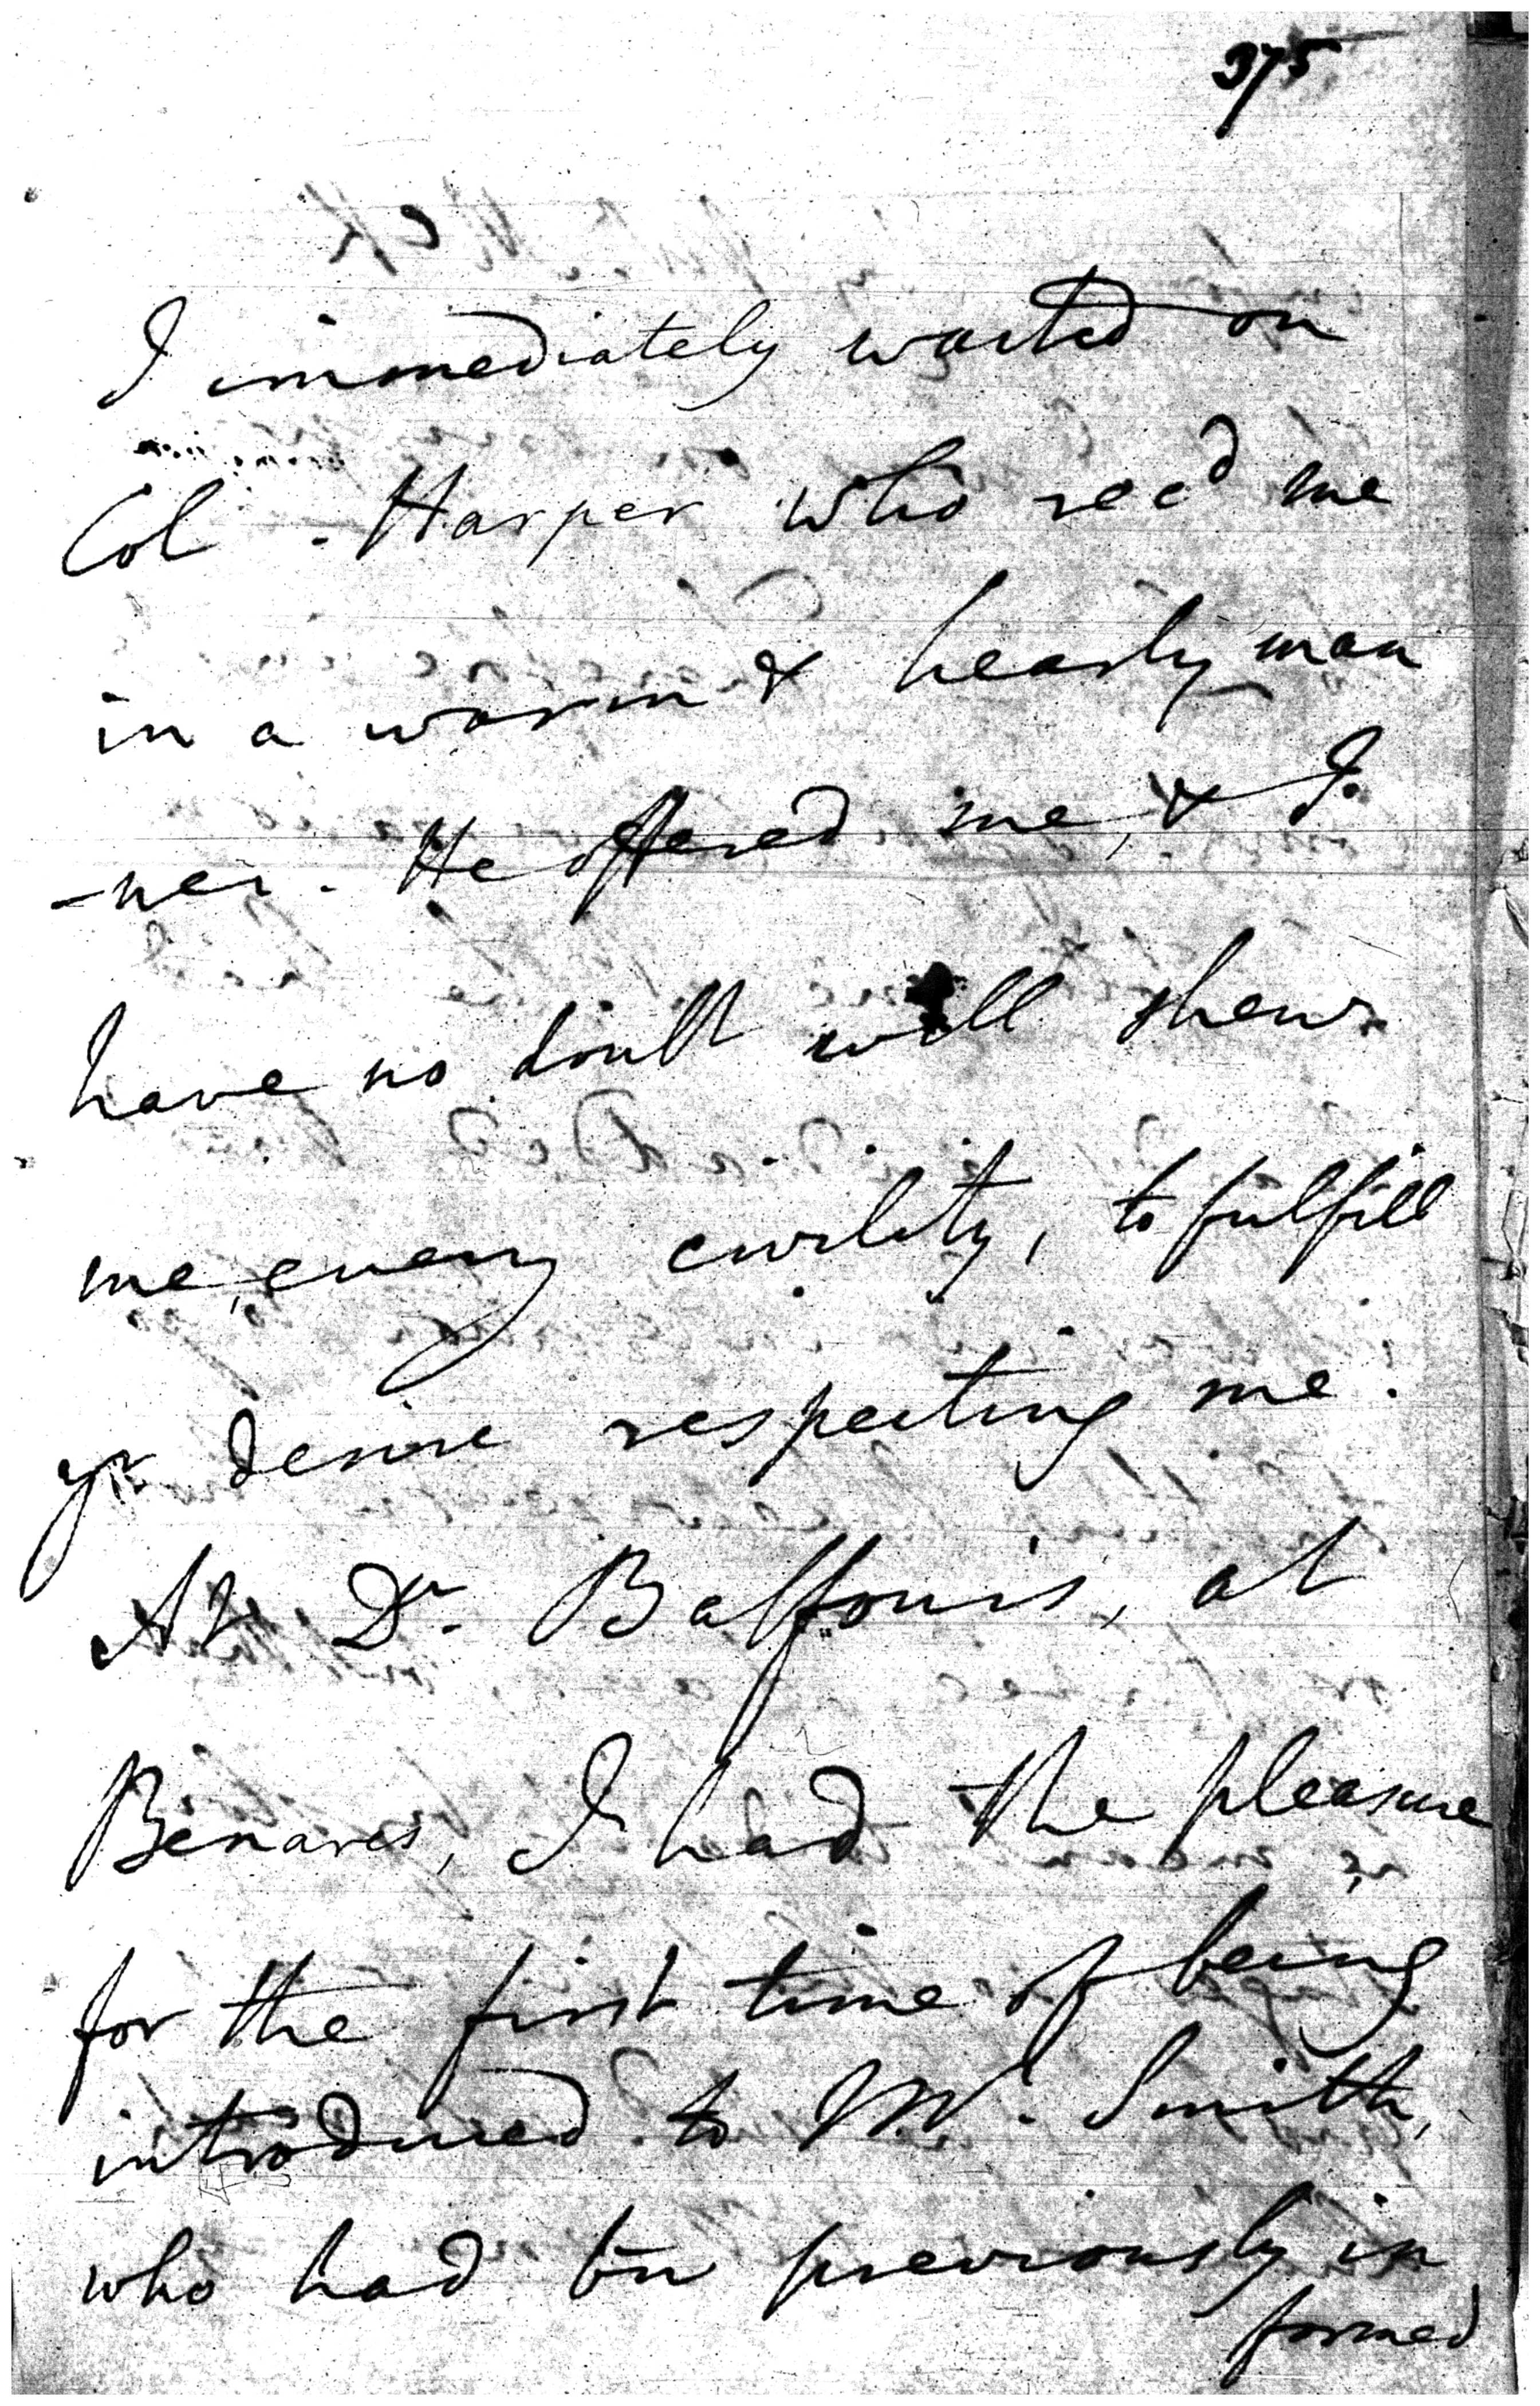 375
I immediately waited on
Col. Harper who rec'd me
in a warm & hearty man
-ner. He offered me, & I
have no doubt will shew
me every civility, to fulfill
yr desire respecting me.
At Dr. Balfour's, at
Benares, I had the pleasure
for the first time of being
introduced to Mr. Smith,
who had bn previously in
formed